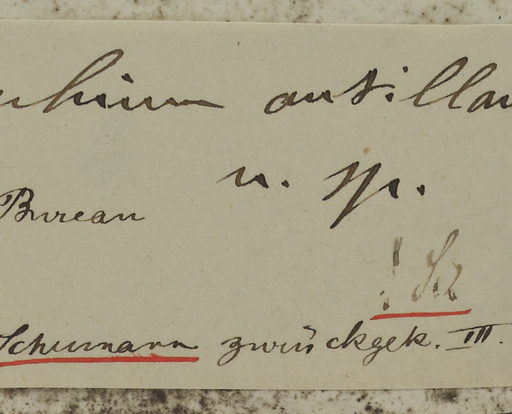 antillan
n. sp.
Bureau
! Sz
Schumann zurückgek. III.